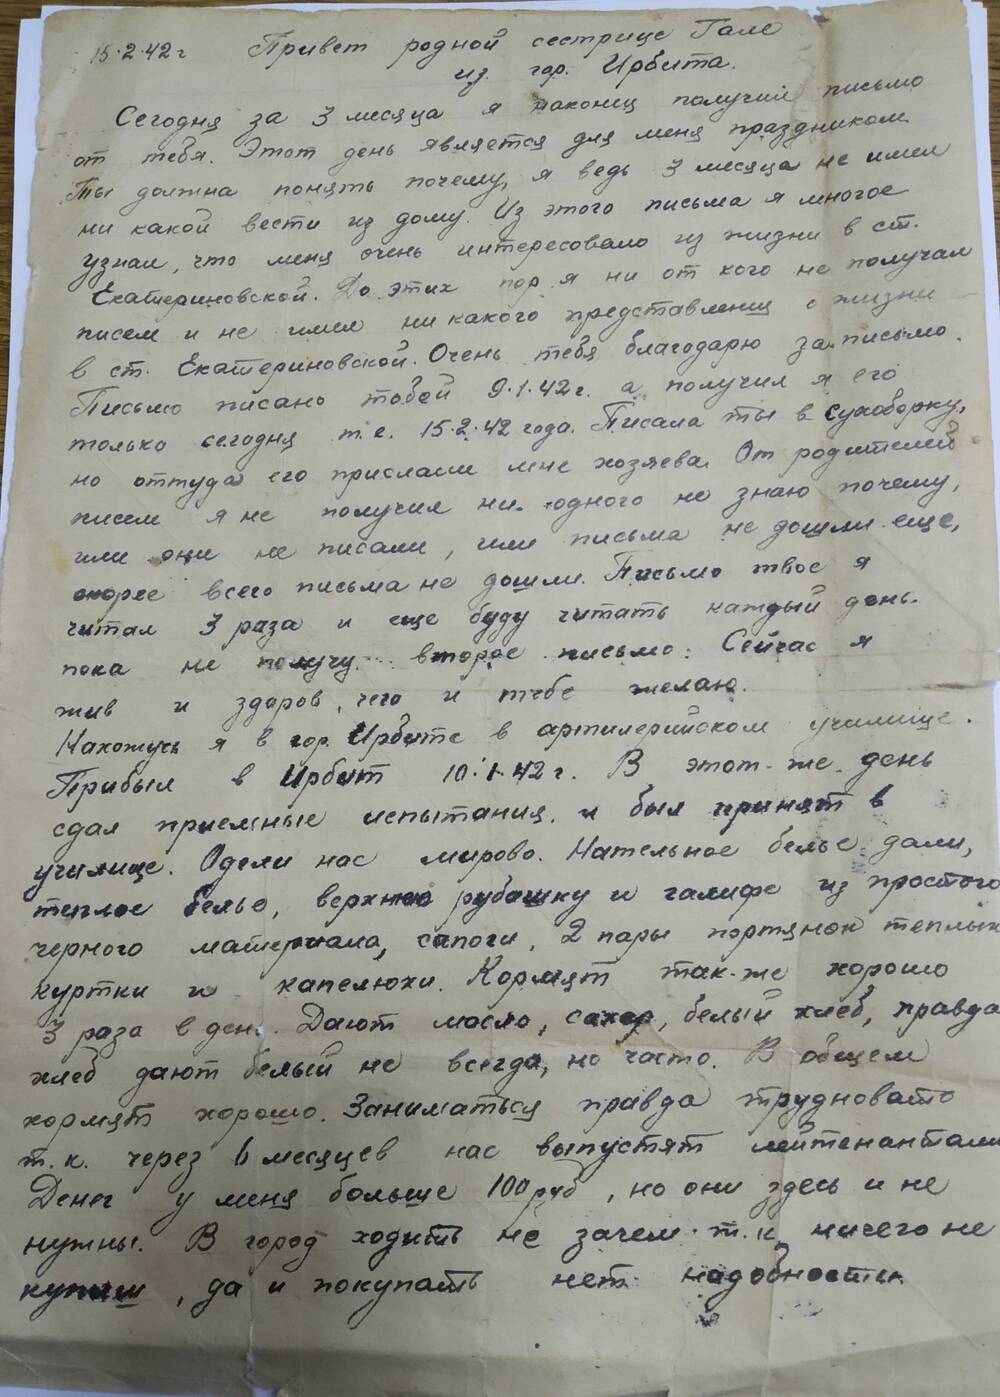 15.2.42г Привет родной сестрице Гале
из гор. Ирбита.
Сегодня за 3 месяца я наконец получил письмо
от тебя. Этот день является для меня праздником.
Ты должна понять почему, я ведь 3 месяца не имел
ни какой вести из дому. Из этого письма я многое
узнал, что меня очень интересовало из жизни в ст.
Екатериновской. До этих пор я ни от кого не получал
писем и не имел ни какого представления о жизни
в ст. Екатериновской. Очень тебя благодарю за письмо.
Письмо писано тобой 9.1.42г. а получил я его
только сегодня т.е. 15.2.42 года. Писала ты в Сухоборку,
но оттуда его прислали мне хозяева. От родителей
писем я не получил ни одного не знаю почему,
или они не писали, или письма не дошли еще,
скорее всего письма не дошли. Письмо твое я
читал 3 раза и еще буду читать каждый день.
пока не получу второе письмо. Сейчас я
жив и здоров, чего и тебе желаю.
Нахожусь я в гор. Ирбите в артилерийском училище.
Прибыл в Ирбит 10.1.42г. В этот-же день
сдал приемные испытания и был принят в
училище. Одели нас мирово. Нательное белье дали,
теплое белье, верхнюю рубашку и галифе из простого
черного материала, сапоги, 2 пары портянок теплых
куртки и капелюхи. Кормят так-же хорошо
3 раза в день. Дают масло, сахар, белый хлеб, правда
хлеб дают белый не всегда, но часто. В общем
кормят хорошо. Заниматься правда трудновато
т.к. через 6 месяцев нас выпустят лейтенантами
Денег у меня больше 100 руб, но они здесь и не
нужны. В город ходить не зачем т.к. ничего не
купиш, да и покупать нет надобности